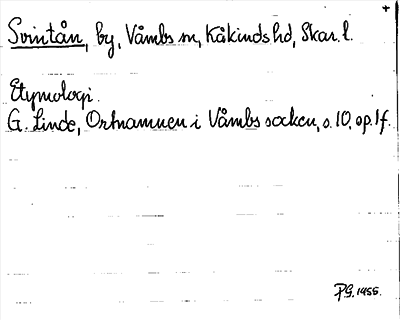 +
Svintån, by, Våmbs sn, Kåkinds hd, Skar. l.
Etymologi.
G. Linde, Ortnamnen i Våmbs socken, s. 10, sp. 1 f.
P.G. 1955.